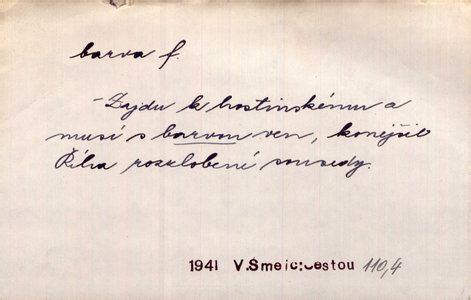 barva f.
- Zajdu k hostinskému a
musí s barvou ven, konejšil
Říha rozzlobené sousedy.
1941 V.Smejc:Cestou 110,4